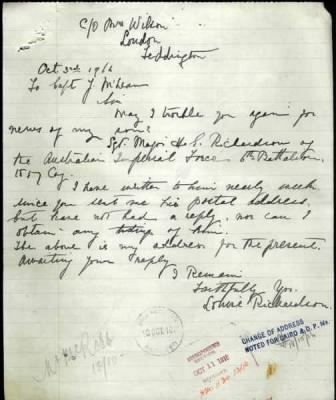 C/O Mrs Wilson
London
Teddington
Oct 3rd 1916
To Capt J. McLean
Sir
May I trouble you again for
news of my son?
Sgt. Major H. S. Richardson of
the Australian Imperial Force 6th Battalion,
Coy.
I have written to him nearly week
since you sent me his postal address,
but have not had a reply, nor can I
obtain any of him.
The above is my address for the present.
Awaiting your reply
I Remain
Faithfully Yrs.
Louise Richardson
OCT 11 1916
CHANGE OF ADDRESS
NOTED FOR CAIRO A.D.P.